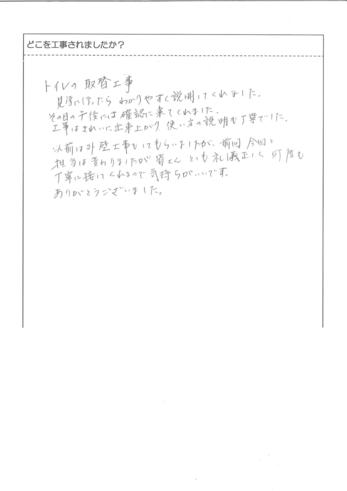 どこを工事されましたか？
トイレの取替工事
見学に行ったら わかりやすく説明してくれました。
その日の午後には確認に来てくれました。
工事はきれいに出来上がり 使い方の説明も丁寧でした。
以前は外壁工事もしてもらいましたが、前回 今回と
担当は変わりましたが 皆さん とても礼儀正しく 何度も
丁寧に接してくれるので 気持ちがいいです。
ありがとうございました。